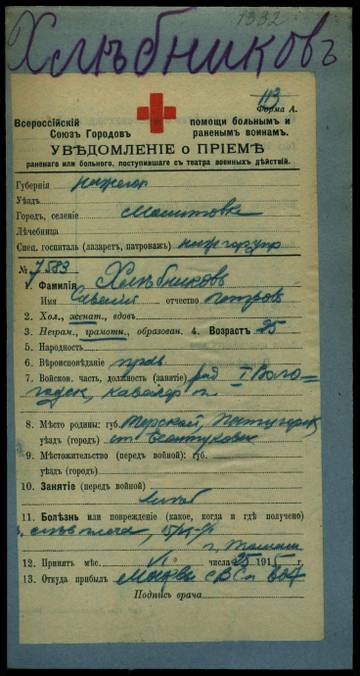 1332
Хлѣбниковъ
113
Форма А.
Всероссійскій Союзъ Городовъ
помощи больнымъ и раненымъ воинамъ.
УВѢДОМЛЕНІЕ о ПРІЕМѢ
раненаго или больного, поступившаго съ театра военныхъ дѣйствій.
Губернія нижегор
Уѣздъ
Городъ, селеніе Молитовка
Лѣчебница
Спец. госпиталь (лазаретъ, патронажъ)
№ 7583
1. Фамилія Хлѣбниковъ
Имя Савелій отчество петровъ
2. Хол., женат., вдов.
3. Неграм., грамотн., образован. 4. Возрастъ 25
5. Народность
6. Вѣроисповѣданіе прав
7. Войсков. часть, должность (занятіе) ряд I Воло-
годск, кавалер п.
8. Мѣсто родины: губ. Терской, Пятигорск
уѣздъ (городъ) ст. Есентуковск
9. Мѣстожительство (передъ войной): губ.
уѣздъ (городъ)
10. Занятіе (передъ войной)
хлѣб
11. Болѣзнь или поврежденіе (какое, когда и гдѣ получено)
плеча,
12. Принятъ мѣс. VI числа 25 1915 г.
13. Откуда прибылъ Москвы
Подпись врача